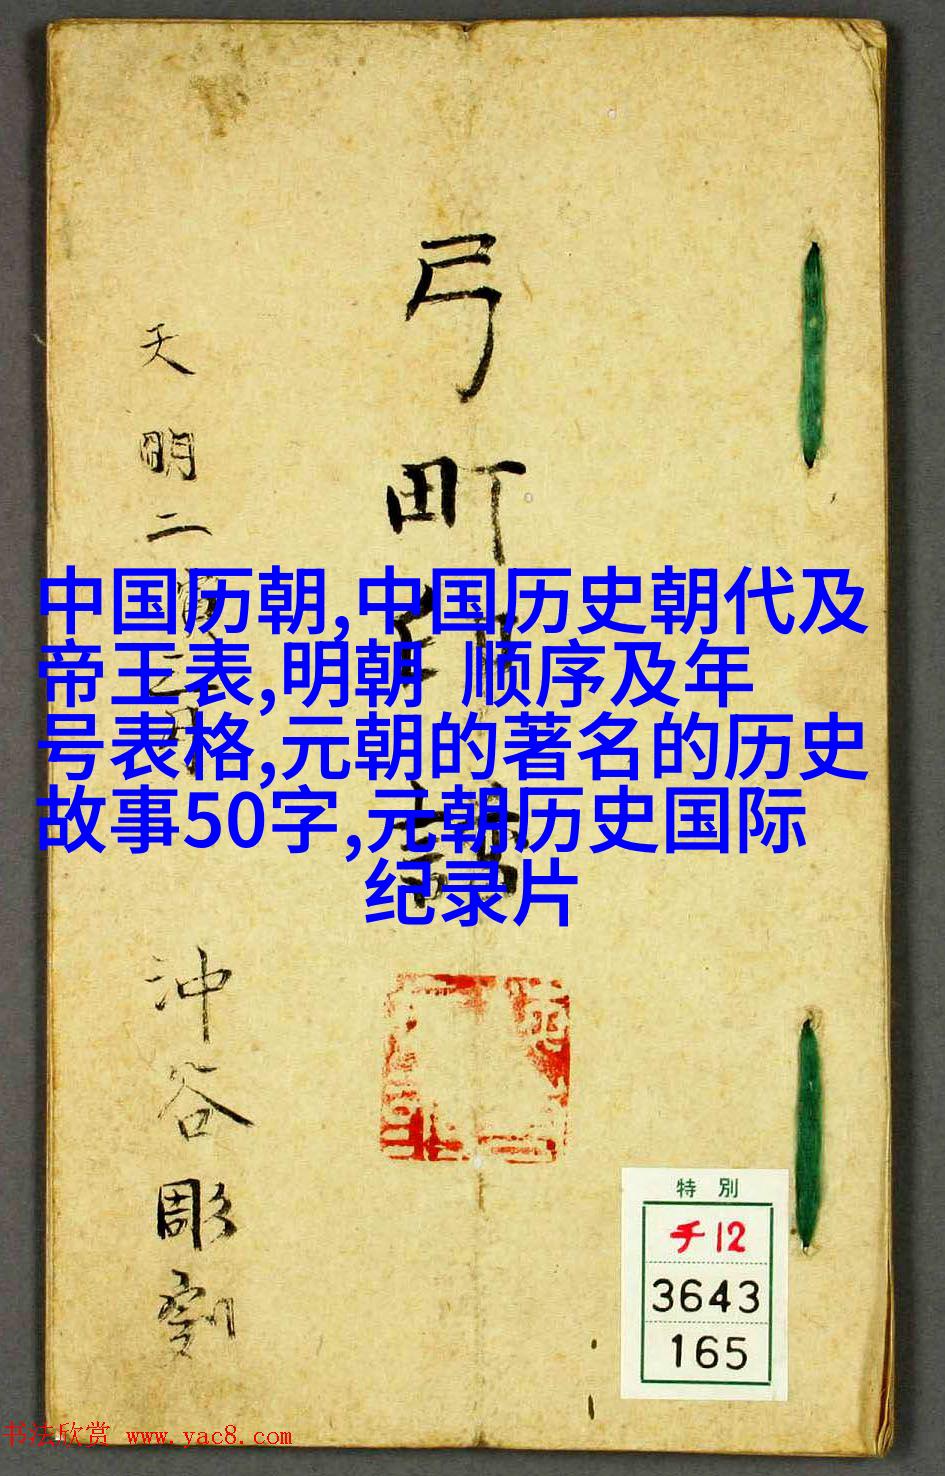 弓町印譜
天明二寅三月
沖谷彫刻
中国历朝,中国历史朝代及
帝王表,明朝 顺序及年
号表格,元朝的著名的历史
故事50字,元朝历史国际
纪录片
特別
チ12
3643
165
书法欣赏 www.yac8.com